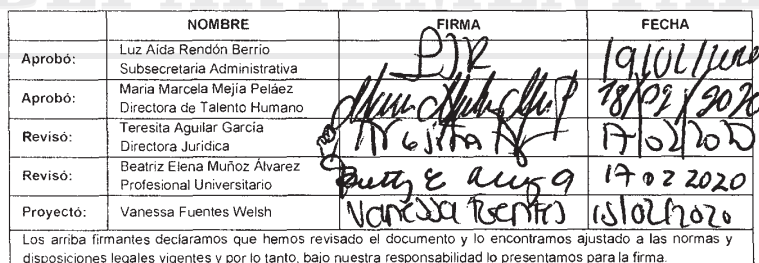 NOMBRE FIRMA FECHA
Aprobó: Luz Aída Rendón Berrio
Subsecretaria Administrativa
Aprobó: Maria Marcela Mejía Peláez 18/02/2020
Directora de Talento Humano
Revisó: Teresita Aguilar García 17/02/2020
Directora Jurídica
Revisó: Beatriz Elena Muñoz Álvarez 17 02 2020
Profesional Universitario
Proyectó: Vanessa Fuentes Welsh Vanessa Fuentes 15/02/2020
Los arriba firmantes declaramos que hemos revisado el documento y lo encontramos ajustado a las normas y
disposiciones legales vigentes y por lo tanto, bajo nuestra responsabilidad lo presentamos para la firma.